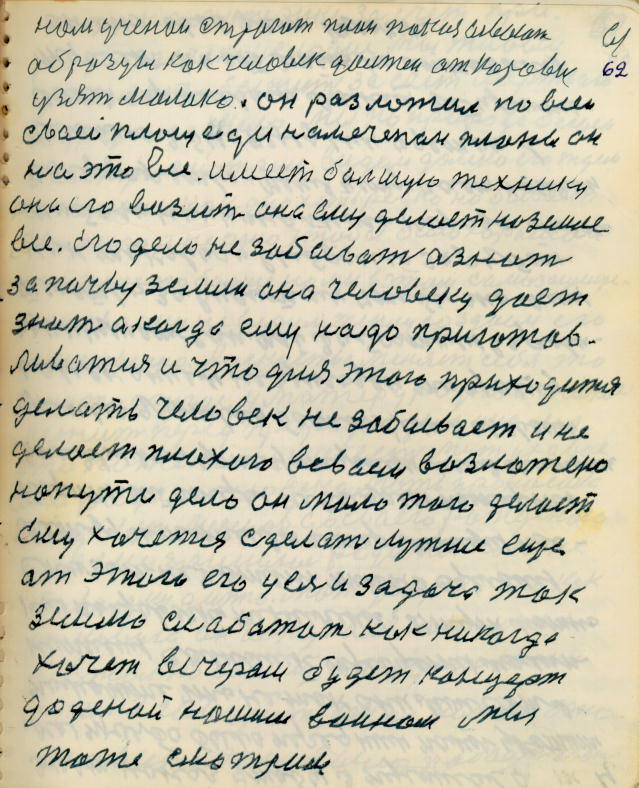 нам ученои строгот план показовоет 61
образум как человек должен от коровы 62
узят малако. он разложил по все
сваеи площееди намеченаи плана он
на это все. имеет балшую технику
она его возит она ему делает на земле
все. Его дело не забыват а знат
за пачву земли она человеку дает
знат а когда ему надо приготов-
ливатся и что для этого приходится
делать человек не забывает и не
делает плохого возложено
на пути дело он мало того делает
Ему хочетия сделат лутше еще
ат этого его цел и задача так
землю как никогда
хочет вечерам будет канцерт
нашим воинам мы
тоже смотрим